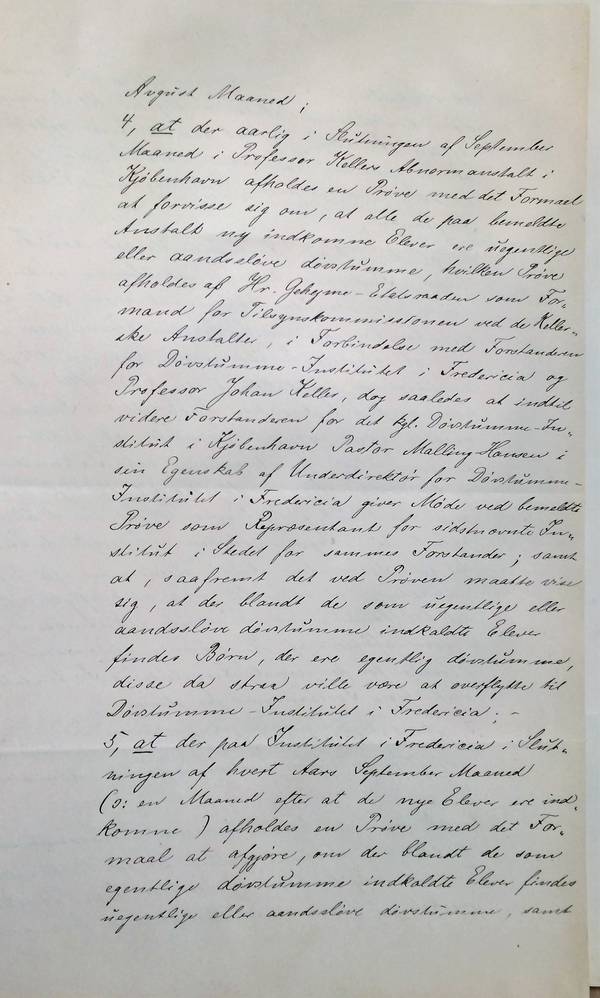 Avgust Maaned;
4, at der aarlig i Slutningen af September
Maaned i Professor Kellers Abnormanstalt i
Kjöbenhavn afholdes en Pröve med det Formael
at forvisse sig om, at alle de paa bemeldte
Anstalt ny indkomne Elever ere uegentlige
eller aandsslöve dövstumme, hvilken Pröve
afholdes af Hr. Gehejme-Etatsraaden som For-
mand for Tilsynskommissionen ved de Keller-
ske Anstalter, i Forbindelse med Forstanderen
for Dövstumme-Institutet i Fredericia og
Professor Johan Keller, dog saaledes at indtil
videre Forstanderen for det kgl. Dövstumme-In-
stitut i Kjöbenhavn Pastor Malling-Hansen i
sin Egenskab af Underdirektör for Dövstumme-
Institutet i Fredericia giver Möde ved bemeldte
Pröve som Repræsentant for sidstnævnte In-
stitut i Stedet for sammes Forstander; samt
at, saafremt det ved Pröven maatte vise
sig, at der blandt de som uegentlige eller
aandsslöve dövstumme indkaldte Elever
findes Börn, der ere egentlig dövstumme,
disse da strax ville være at overflytte til
Dövstumme-Institutet i Fredericia; -
5, at der paa Institutet i Fredericia i Slut-
ningen af hvert Aars September Maaned
(ɔ: en Maaned efter at de nye Elever ere ind-
komne) afholdes en Pröve med det For-
maal at afgjöre, om der blandt de som
egentlige dövstumme indkaldte Elever findes
uegentlige eller aandsslöve dövstumme, samt